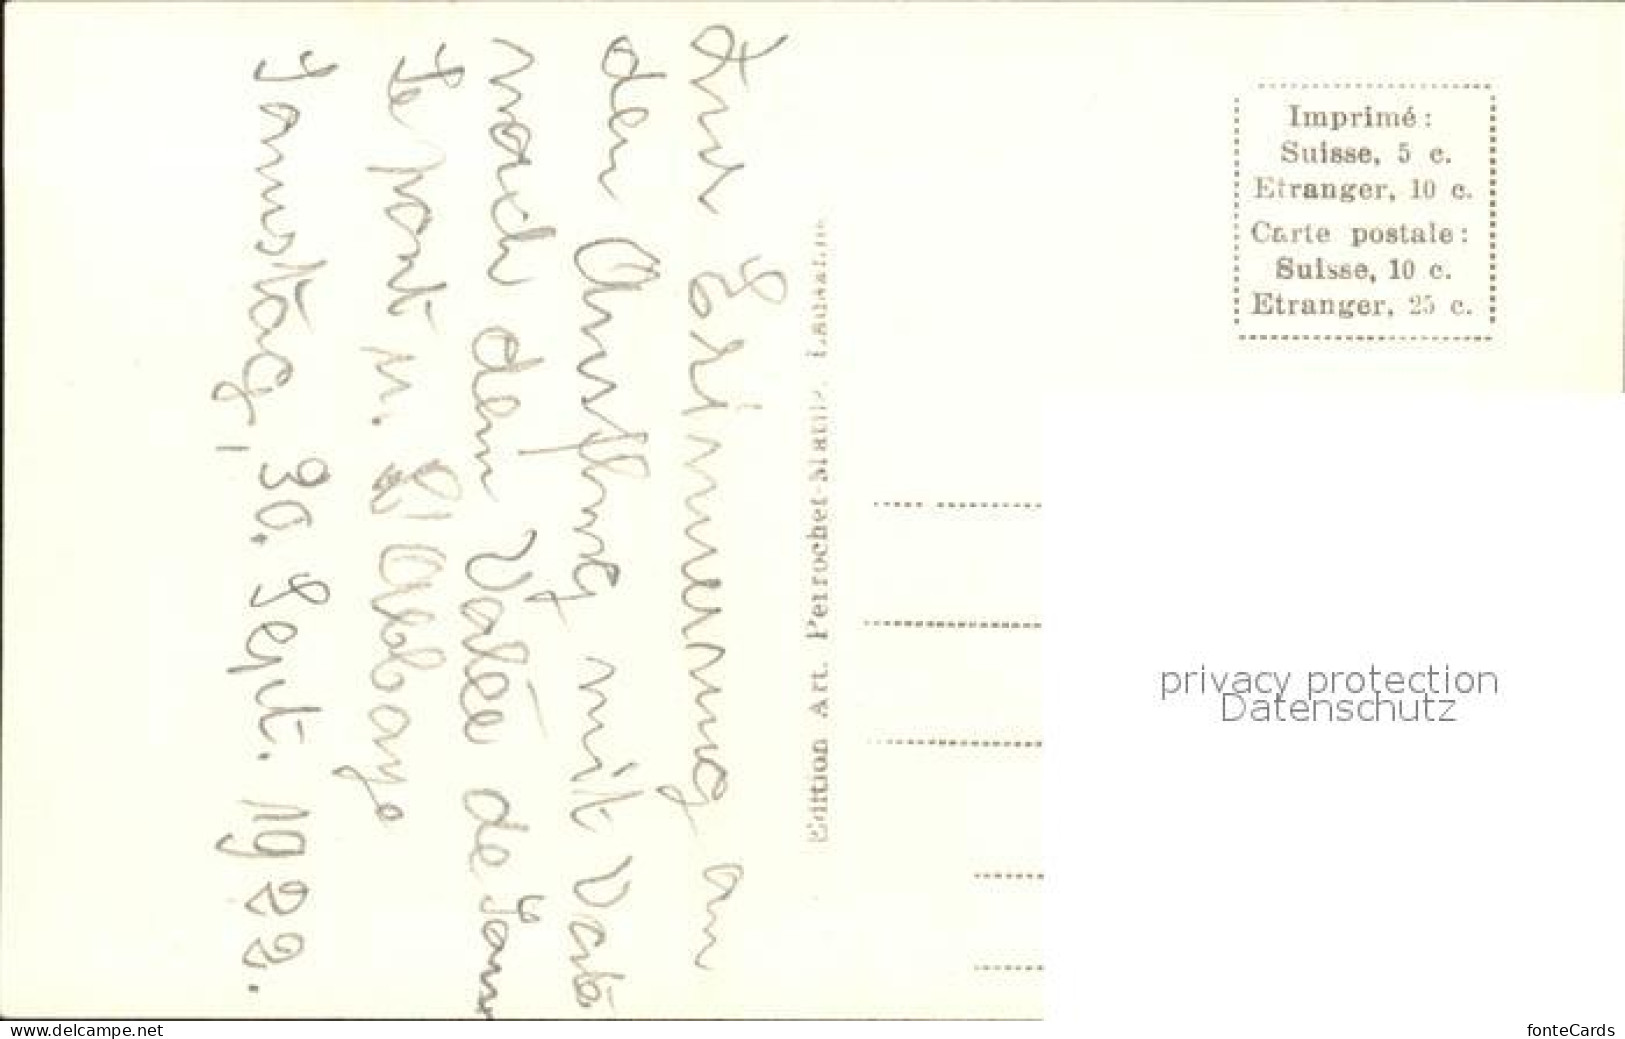 Zur Erinnerung an
den Ausflug mit Vater
nach dem Valée de Joux
Le pont u. L'Abbaye
Samstag, 30. Sept. 1922.
Edition Art. Perrochet-Matile, Lausanne
Imprimé:
Suisse, 5 c.
Etranger, 10 c.
Carte postale:
Suisse, 10 c.
Etranger, 25 c.
privacy protection
Datenschutz
www.delcampe.net
fonteCards